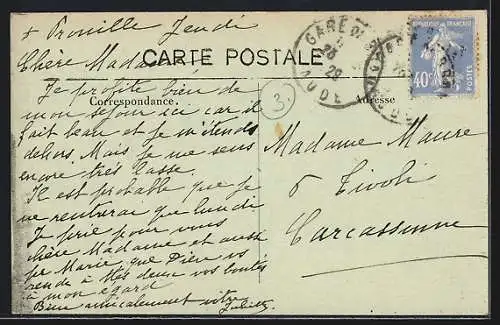 + Prouille Jeudi
CARTE POSTALE
Chère Madame
Je profite bien de
Correspondance.
mon séjour ici car il
fait beau et je m'étends
dehors. Mais je me sens
encore très lasse.
Il est probable que je
ne rentrerai que lundi
Je prie pour vous
chère Madame et aussi
pr Marie, que Dieu vs
rende à ttes deux vos bontés
à mon égard
Bien amicalement votre
Juliette
3.
GARE DE
28
AUDE
REPUBLIQUE FRANÇAISE
40c
POSTES
Adresse
Madame Maure
6 Tivoli
Carcassonne